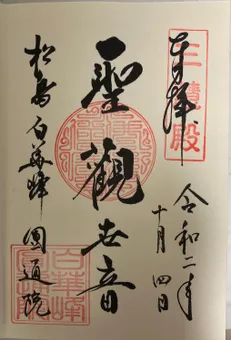 奉拝
三慧殿
令和二年
十月四日
聖観世音
松島白華峰圓通院
白華峰